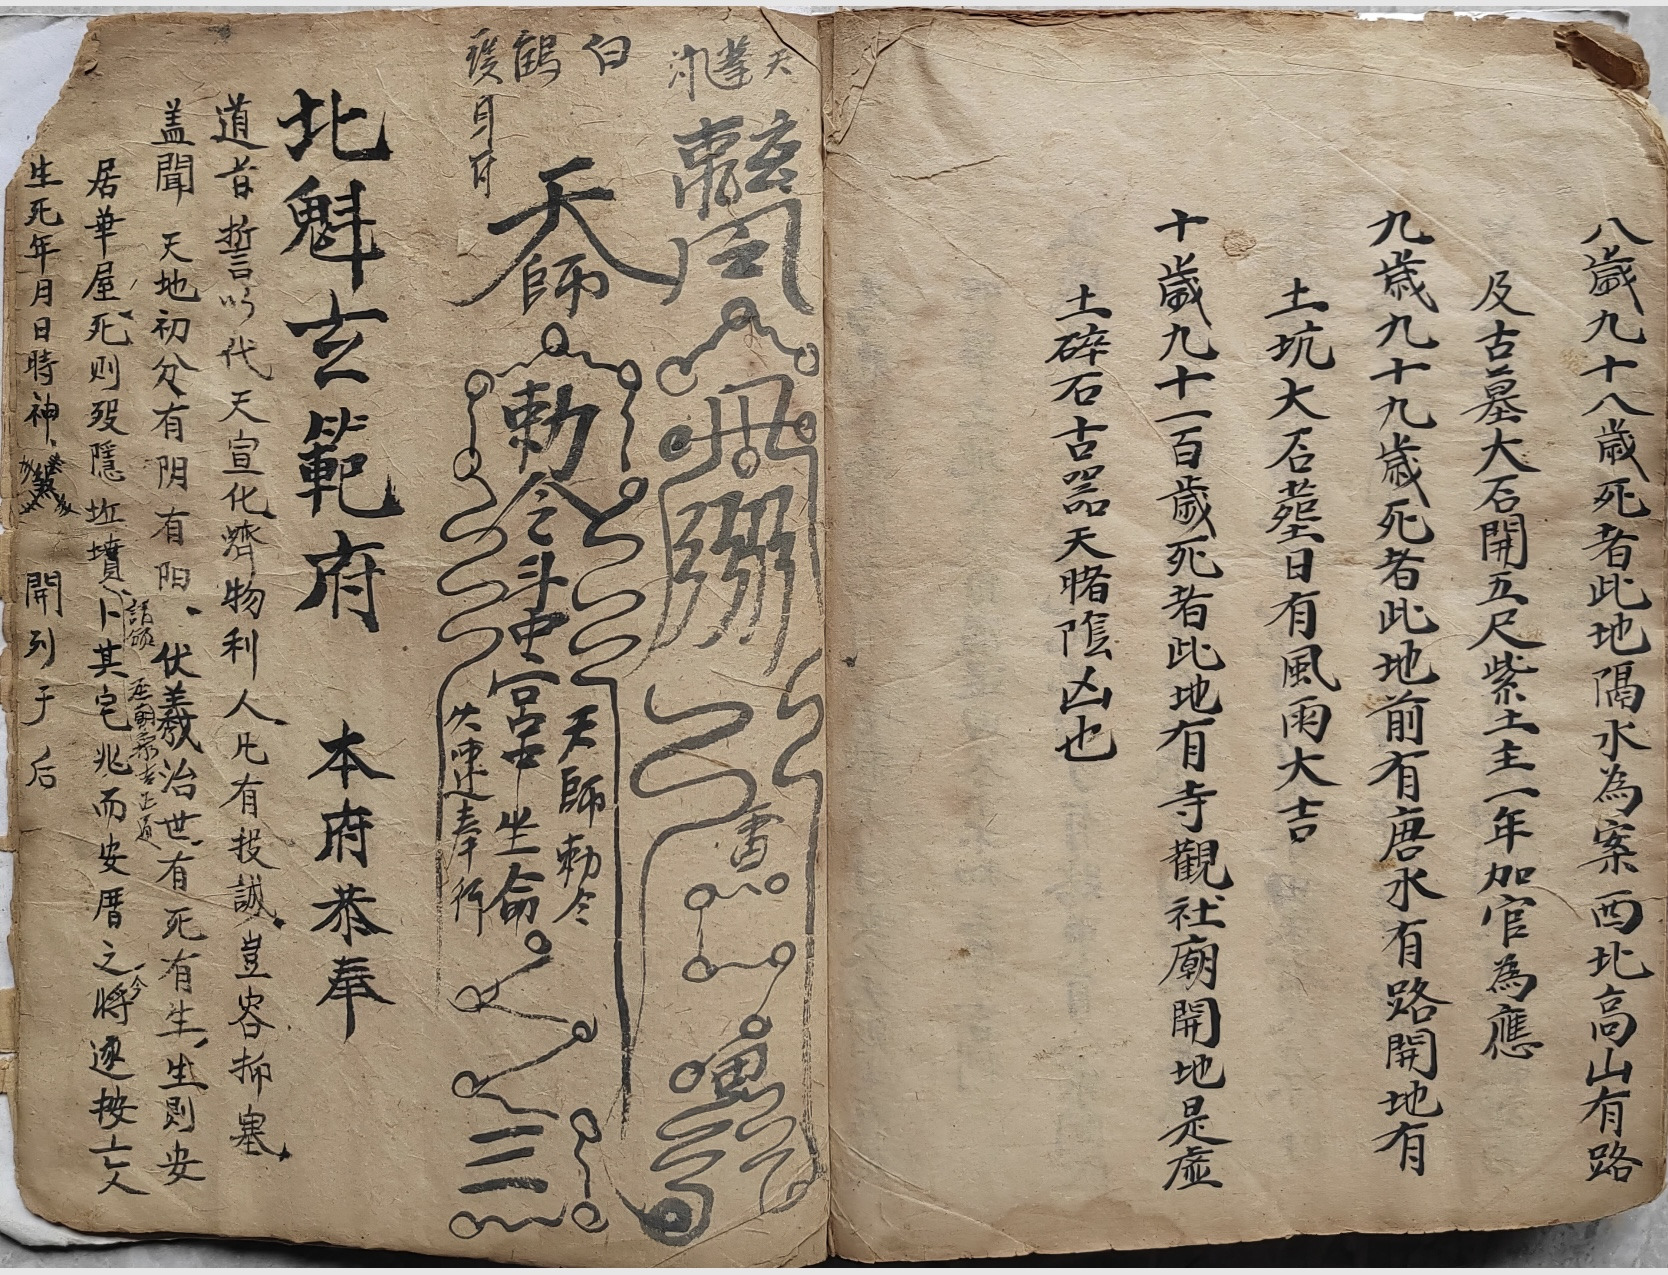 八歲九十八歲死者此地隔水為案西北高山有路
及古墓大石開五尺紫土主一年加官為應
九歲九十九歲死者此地前有唐水有路開地有
土坑大石塟日有風雨大吉
十歲九十一百歲死者此地有寺觀社廟開地是虛
土碎石古器天睹陰凶也
白鶴
身符
天師
勅令斗中宮坐命
天師勅令
火速奉行
北魁玄範府 本府恭奉
道旨誓以代天宣化濟物利人凡有投誠豈容抑塞
盖聞 天地初分有阴有阳伏羲治世有死有生生則安
居華屋死則歿隱坵墳卜其宅兆而安厝之今將逐按亡人
生死年月日時神 開列于后